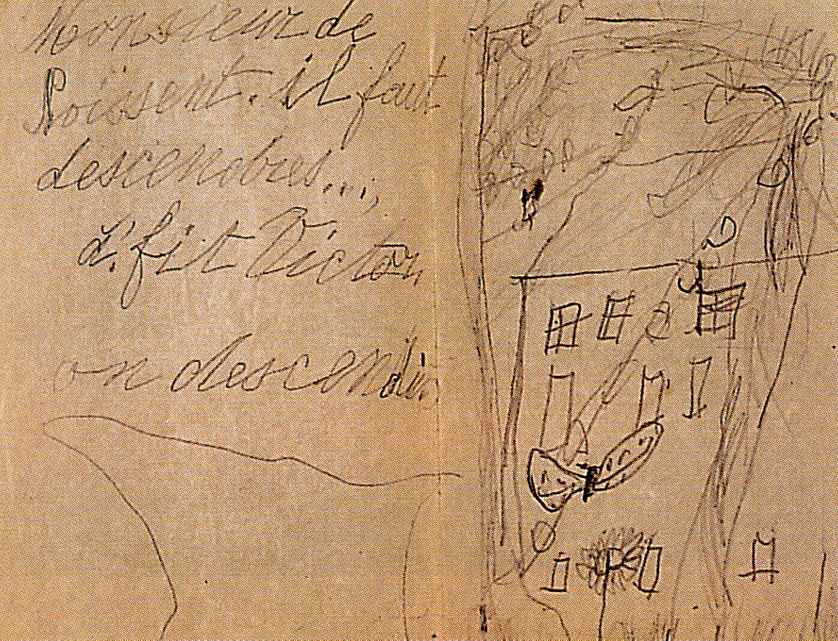 Monsieur de
Poissent. il faut
descendres...,
d! fit Victor.
on descendis